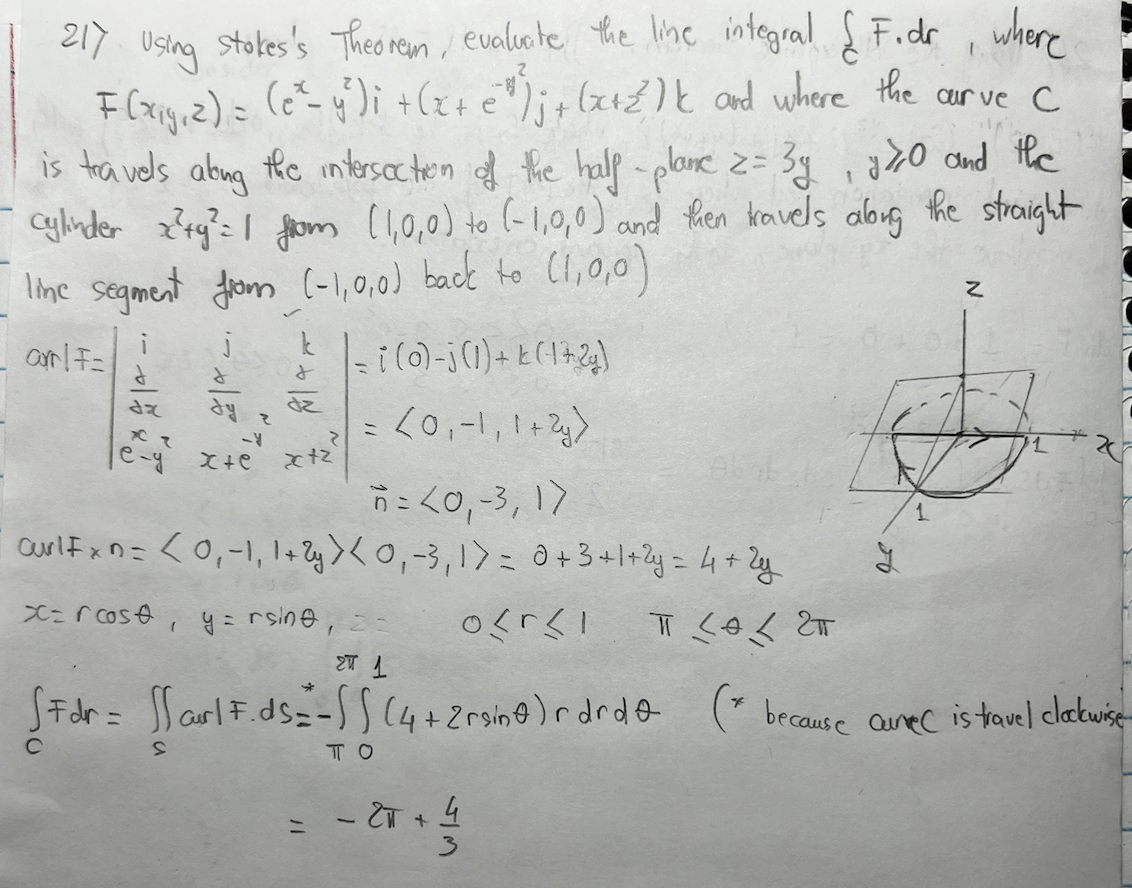 21) Using stokes's Theorem, evaluate the line integral ∫_C F.dr , where
F(x,y,z) = (e^x - y^2)i + (x + e^-y^2)j + (x+z^2)k and where the curve C
is travels along the intersection of the half-plane z = 3y , y≥0 and the
cylinder x^2+y^2=1 from (1,0,0) to (-1,0,0) and then travels along the straight
line segment from (-1,0,0) back to (1,0,0)
z
x
1
1
y
curl F = | i j k ∂/∂x ∂/∂y ∂/∂z e^x-y^2 x+e^-y^2 x+z^2 | = i(0) - j(1) + k(1+2y)
= <0, -1, 1+2y>
n⃗ = <0, -3, 1>
curl F x n = <0, -1, 1+2y> <0, -3, 1> = 0+3+1+2y = 4+2y
x = r cosθ , y = r sinθ , z = 0≤r≤1 π≤θ≤2π
∫_C F dr = ∬_S curl F. ds =* -∫_π^2π ∫_0^1 (4+2r sinθ) r dr dθ (* because curve C is travel clockwise
= -2π + 4/3